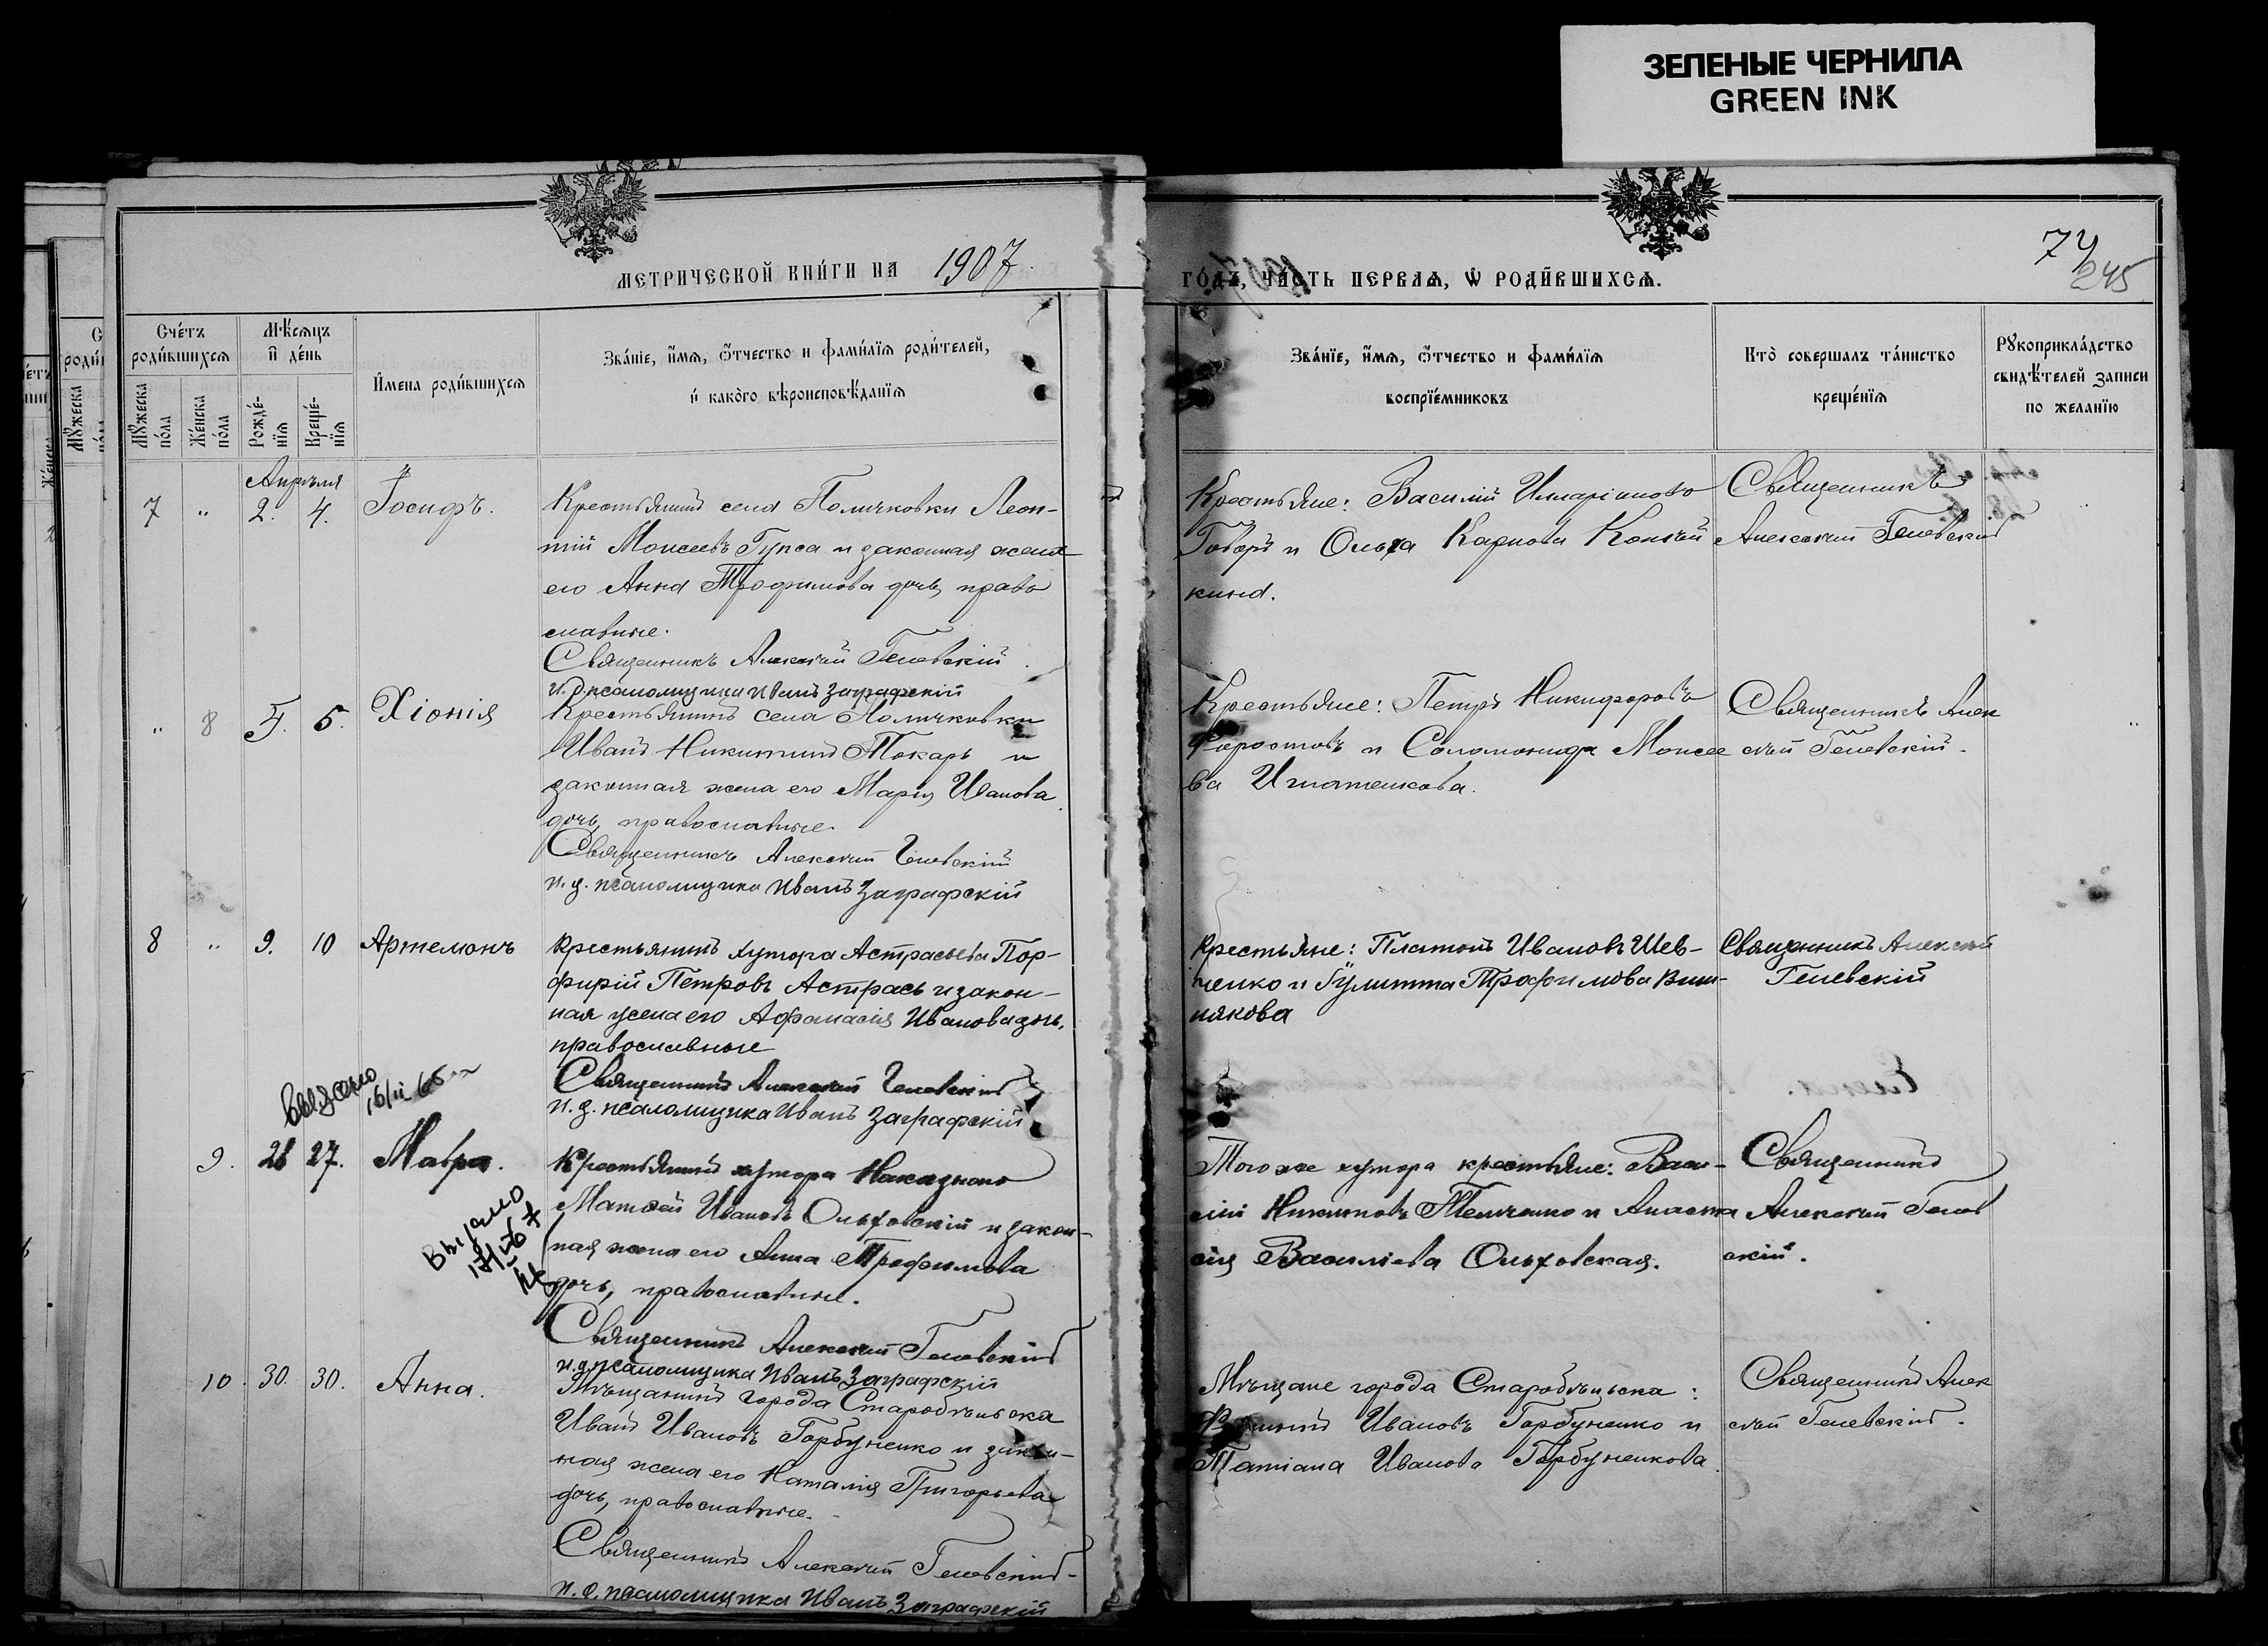 ЗЕЛЕНЫЕ ЧЕРНИЛА
GREEN INK
МЕТРИЧЕСКОЙ КНИГИ НА 1907
ГОДЪ, ЧАСТЬ ПЕРВАѦ, Ѡ РОДИВШИХСѦ.
74
245
Счетъ родившихсѧ
Мужеска пола
Женска пола
Мѣсѧцъ и день
Рожденїѧ
Крещенїѧ
Имена родившихсѧ
Званїе, имѧ, ѿчество и фамилїѧ родителей,
и какого вѣроисповѣданїѧ
Званїе, имѧ, ѿчество и фамилїѧ
воспрїемниковъ
Кто совершалъ таинство
крещенїѧ
Рукоприкладство
свидѣтелей записи
по желанїю
Апрѣля
7 " 2. 4. Іосифъ.
Крестьянинъ села Поличковки Леон-
тій Моисеевъ Гупса и законная жена
его Анна Трофимова дочь, право
славные.
Священникъ Алексѣй Гелевскій
и. д. псаломщика Иванъ Заграфскій
Крестьяне: Василій Иларіоновъ
и Ольга Карпова
кина.
Священникъ
Алексѣй Гелевскій
" 8 5. 5. Хіонія
Крестьянинъ села Поличковки
Иванъ Никитинъ Токарь и
законная жена его Марія Иванова
дочь, православные.
Священникъ Алексѣй Гелевскій
и. д. псаломщика Иванъ Заграфскій
Крестьяне: Петръ Никифоровъ
Форостовъ и Соломонида Моисее
ва Игнатенкова.
Священникъ Алек
сѣй Гелевскій.
8 " 9. 10 Артемонъ
Крестьянинъ хутора Астрасьева Пор-
фирій Петровъ Астрась и закон-
ная жена его Афанасія Иванова дочь,
православные
Священникъ Алексѣй Гелевскій
и. д. псаломщика Иванъ Заграфскій
Крестьяне: Платонъ Ивановъ Шев-
ченко и Гулитта Трофимова Виш-
някова
Священникъ Алексѣй
Гелевскій
Выдано
9. 26 27. Мавра.
Выдано
Крестьянинъ хутора Наказного
Матвѣй Ивановъ Ольховскій и закон-
ная жена его Анна Трофимова
дочь, православные.
Священникъ Алексѣй Гелевскій
и. д. псаломщика Иванъ Заграфскій
Того же хутора крестьяне: Васи-
лій Никитовъ и Анаста
сія Василіева Ольховская.
Священникъ
Алексѣй Гелев
скій.
10. 30. 30. Анна.
Мѣщанинъ города Старобѣльска
Иванъ Ивановъ Горбуненко и закон-
ная жена его Наталія Григорьева
дочь, православные.
Священникъ Алексѣй Гелевскій
и. д. псаломщика Иванъ Заграфскій
Мѣщане города Старобѣльска:
Ивановъ Горбуненко и
Татіана Иванова Горбуненкова
Священникъ Алек
сѣй Гелевскій.